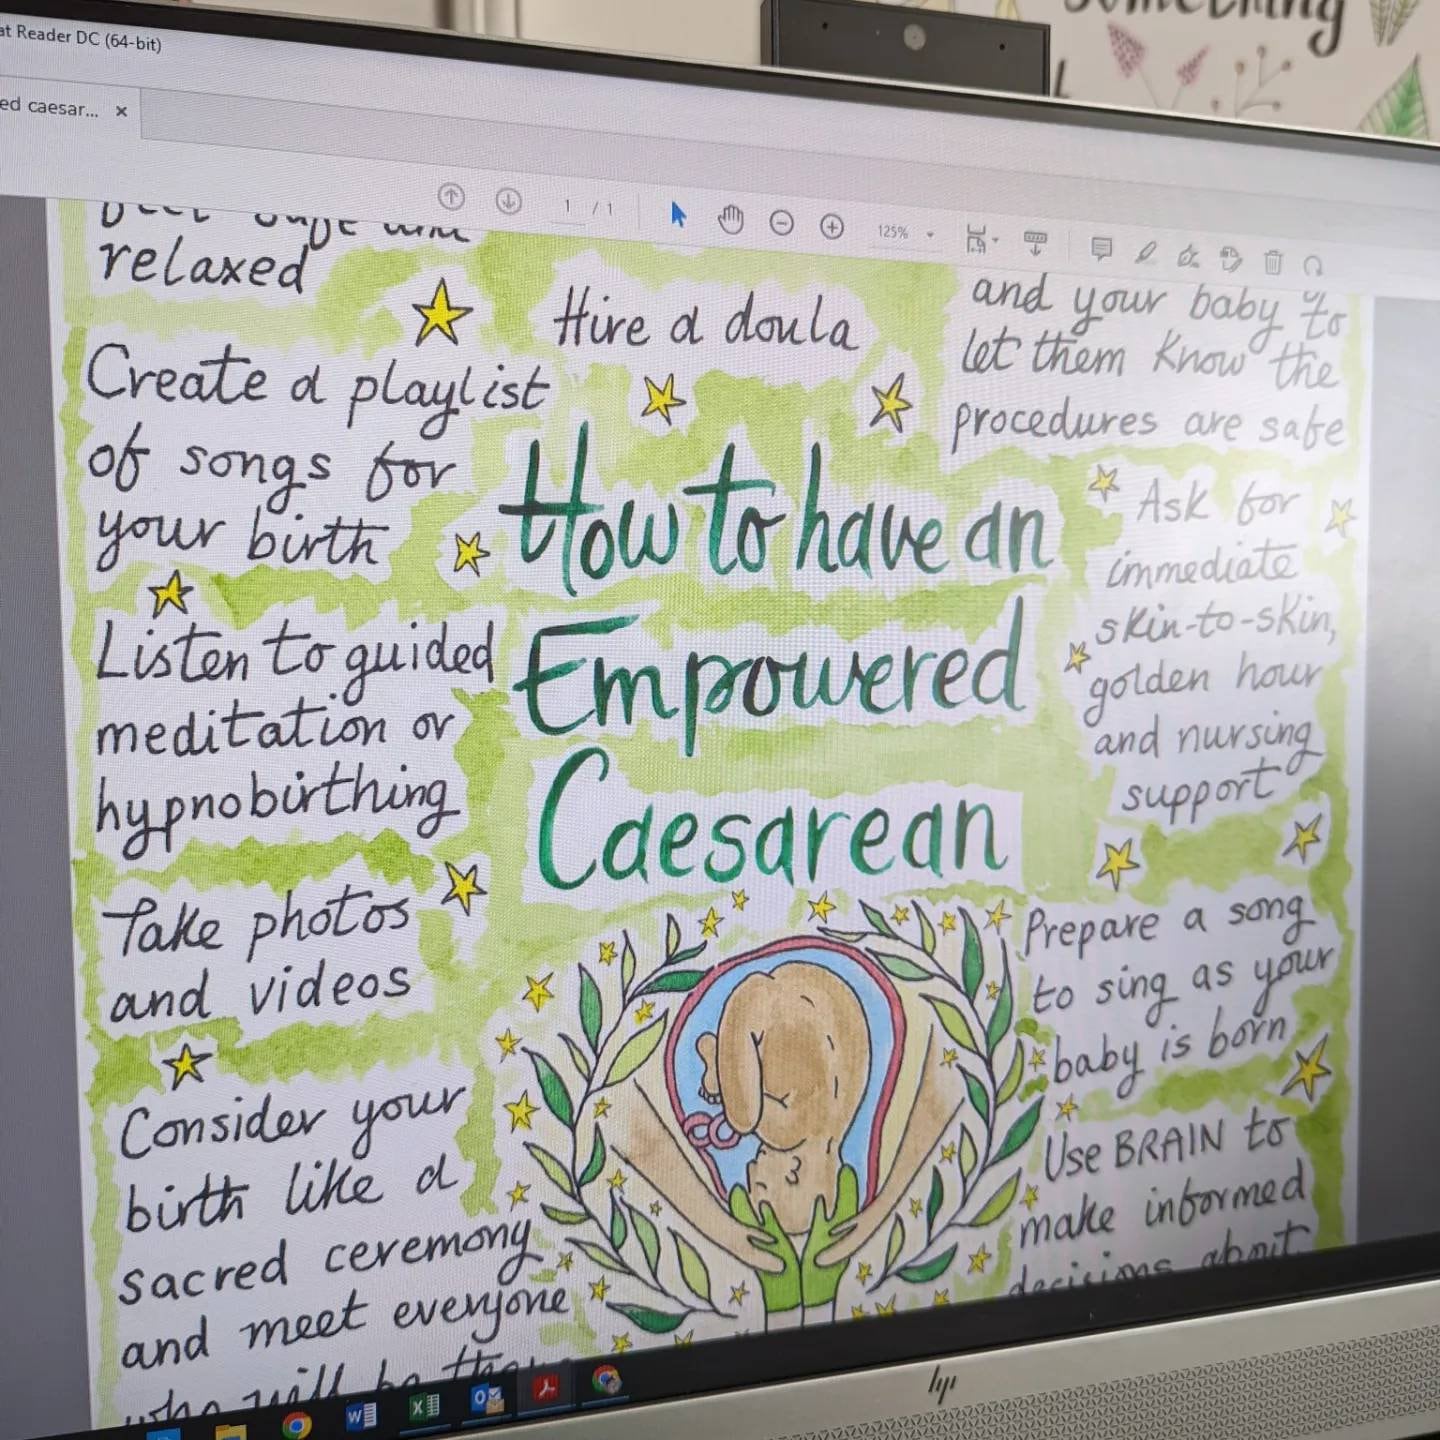 at Reader DC (64-bit)
something
ed caesar... ×
1 / 1
125%
relaxed
Create a playlist
of songs for
your birth
Listen to guided
meditation or
hypnobirthing
Take photos
and videos
Consider your
birth like a
sacred ceremony
and meet everyone
who will be
Hire a doula
How to have an
Empowered
Caesarean
and your baby to
let them know the
procedures are safe
Ask for
immediate
skin-to-skin,
golden hour
and nursing
support
Prepare a song
to sing as your
baby is born
Use BRAIN to
make informed
decisions about
hp